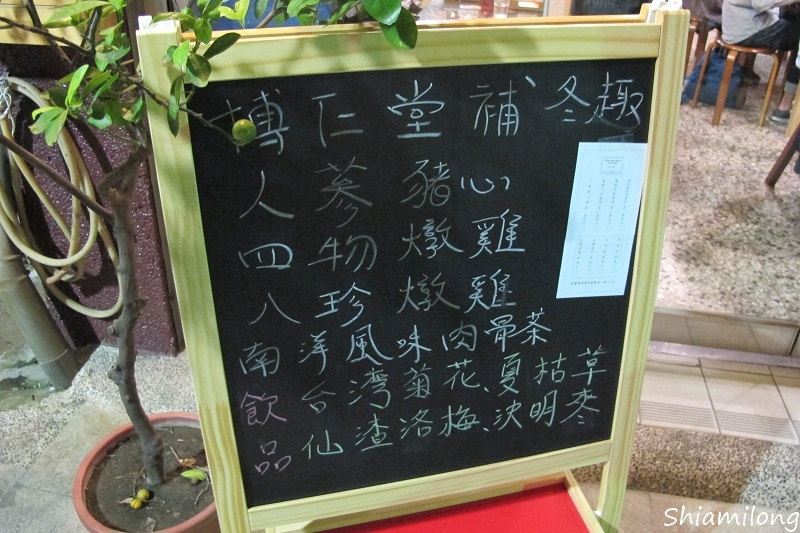 博仁堂補冬趣
人蔘豬心
四物燉雞
八珍燉雞
南洋風味肉骨茶
飲品
台灣菊花、夏枯草
仙渣洛梅、決明麥
Shiamilong